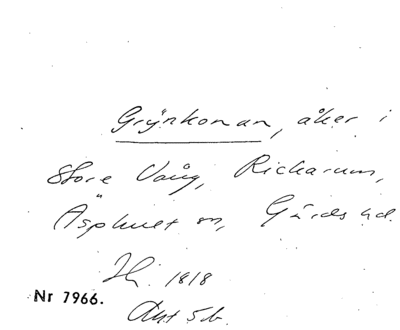 Grynkonan, åker i
Store Vång, Rickarum,
Äsphult sn, Gärds hd.
Nr 7966.
1818
Akt 5b.